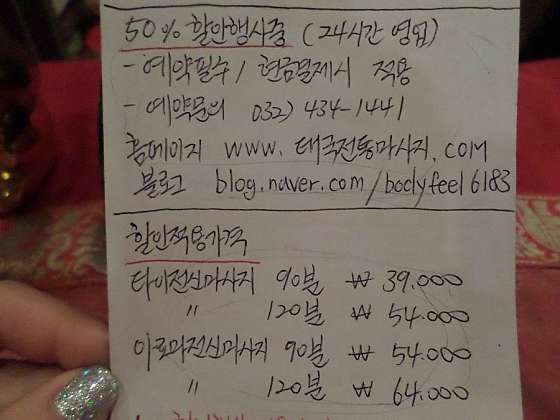 50% 할인행사중 (24시간 영업)
- 예약필수 / 현금결제시 적용
- 예약문의 032) 434-1441
홈페이지 www. 태국전통마사지. com
블로그 blog.naver.com/bodyfeel6183
할인적용가격
타이전신마사지 90분 ₩ 39.000
〃 120분 ₩ 54.000
아로마전신마사지 90분 ₩ 54.000
〃 120분 ₩ 64.000